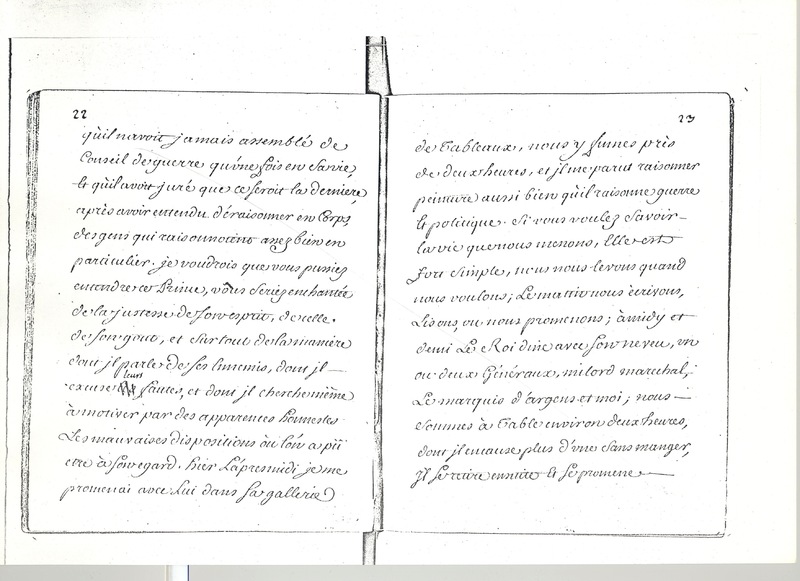 22
qu'il n'avoit jamais assemblé de
Conseil de guerre qu'une fois en sa vie,
Et qu'il avoit juré que ce seroit la derniere,
après avoir entendu déraisonner en Corps,
des gens qui raisonnoient assez bien en
particulier. je voudrois que vous pussiez
entendre ce Prince, vous seriez enchantée
de la justesse de son esprit, de celle
de son gout, et sur tout de la maniere
dont jl parle de ses Ennemis, dont jl
excuse leurs fautes, et dont jl cherche même
à motiver par des apparences honnestes
Les mauvaises dispositions où l'on a pû
etre à son egard. hier L'apresmidi je me
promenai avec Lui dans sa gallerie
23
de Tableaux, nous y fumes près
de deux heures, et jl me parut raisonner
peinture aussi bien qu'il raisonne guerre
Et politique. Si vous voulez savoir
la vie que nous menons, Elle est
fort simple, nous nous levons quand
nous voulons; Le matin nous écrivons,
Lisons, ou nous promenons; à midy et
demi Le Roi dine avec son neveu, un
ou deux Généraux, milord marechal,
Le marquis d'argens et moi; nous
sommes à Table environ deux heures,
dont jl en cause plus d'une sans manger,
Jl se retire ensuite Et se promene